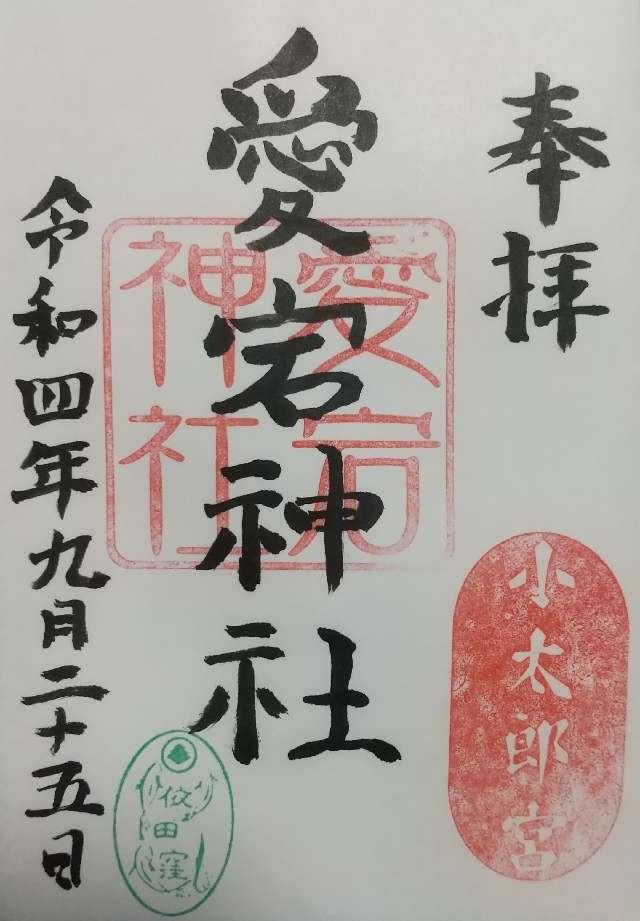 奉拝
小太郎宮
愛宕神社
愛宕
神社
令和四年九月二十五日
田窪